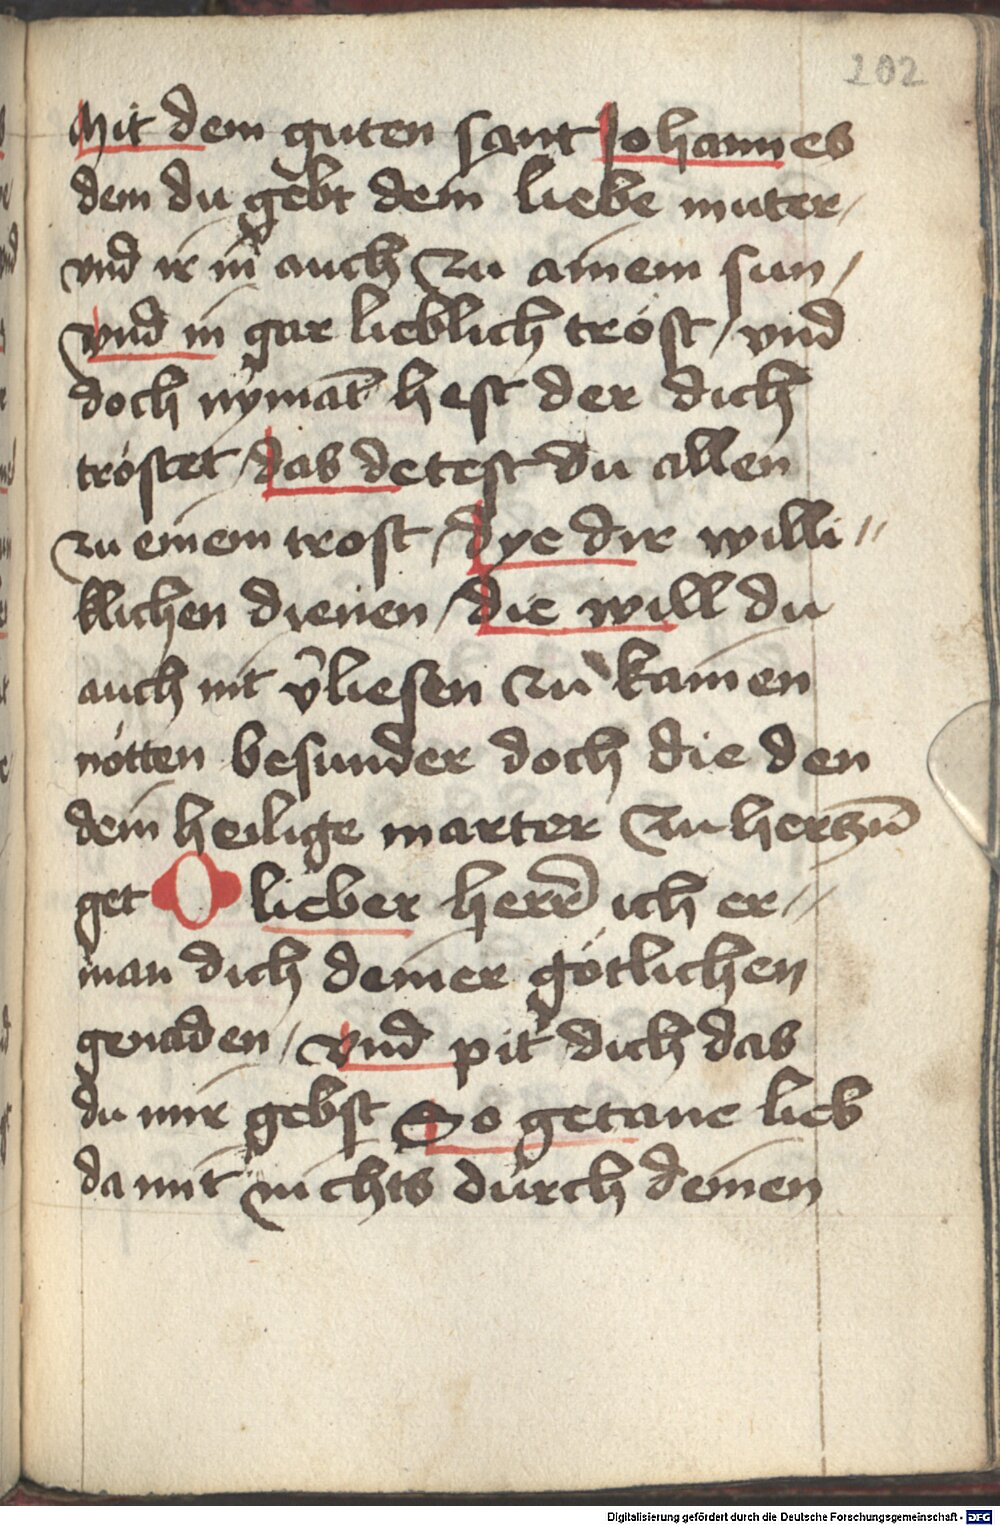 202
Mit dem guten sant Johannes
dem du gebt dein liebe muter /
vnd ir in auch zu ainem sun /
vnd in gar lieblich tröst / vnd
doch nymāt hest der dich
tröstet / das detest du allen
zu einem trost / dye dir willi //
klichen dienen / die will du
auch nit v̄liesen zu kainen
nötten besunder doch die den
dein heilige marter zu herczū
get O lieber herr̄ ich er //
man dich deiner götlichen
genaden / vnd pit dich das
du mir gebst So getane lieb
da mit nichts durch deinen
Digitalisierung gefördert durch die Deutsche Forschungsgemeinschaft - DFG